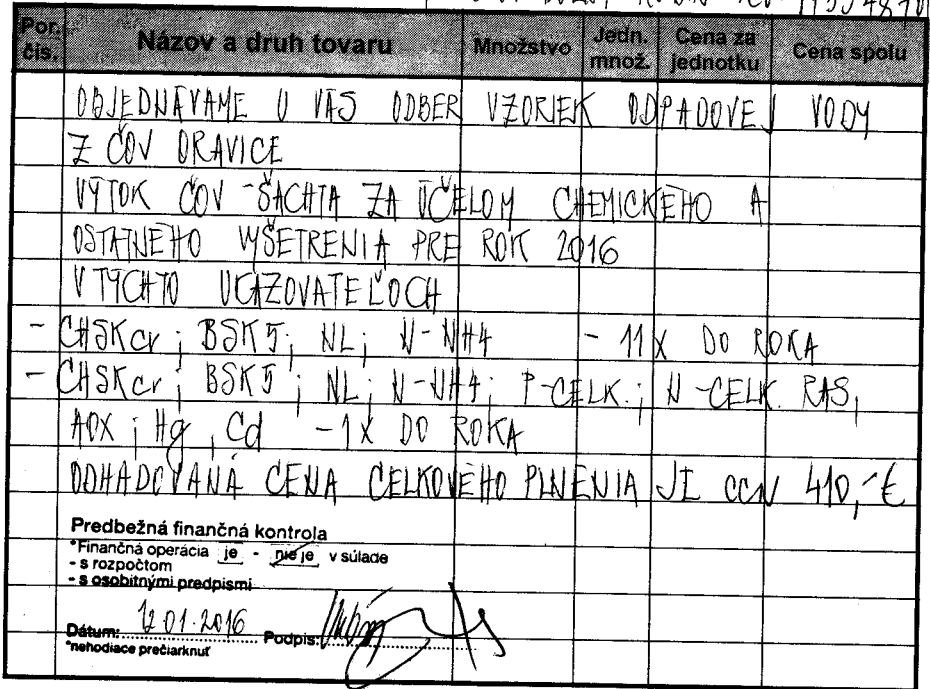 Por. čís. Názov a druh tovaru Množstvo Jedn. množ. Cena za jednotku Cena spolu
OBJEDNÁVAME U VÁS ODBER VZORIEK ODPADOVEJ VODY
Z ČOV ORAVICE
VÝTOK ČOV - ŠACHTA ZA ÚČELOM CHEMICKÉHO A
OSTATNÉHO VYŠETRENIA PRE ROK 2016
V TÝCHTO UKAZOVATEĽOCH
- CHSKcr; BSK5; NL; N-NH4 - 11X DO ROKA
- CHSKcr; BSK5; NL; N-NH4; P-CELK.; N-CELK. RAS,
AOX; Hg, Cd - 1X DO ROKA
ODHADOVANÁ CENA CELKOVÉHO PLNENIA JE CCA 410,-€
Predbežná finančná kontrola
*Finančná operácia je - nie je v súlade
- s rozpočtom
- s osobitnými predpismi
Dátum: 12.01.2016 Podpis:
*nehodiace prečiarknuť